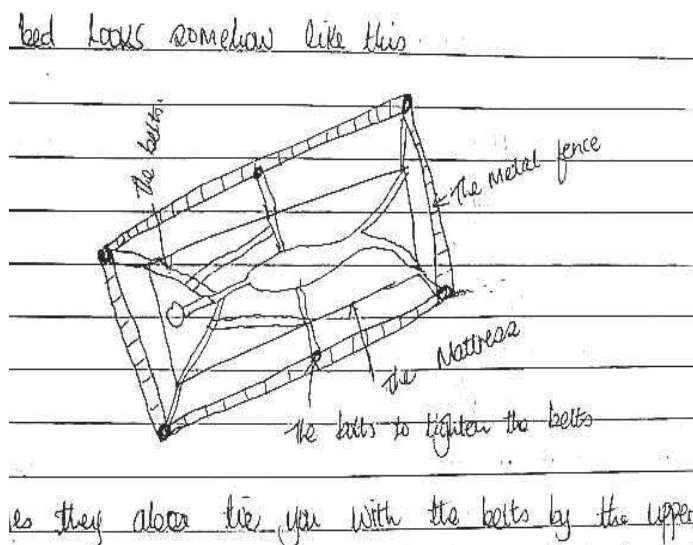 bed looks somehow like this
The belts.
The Metal fence
The Mattress
The bolts to tighten the belts
es they also tie you with the belts by the upper